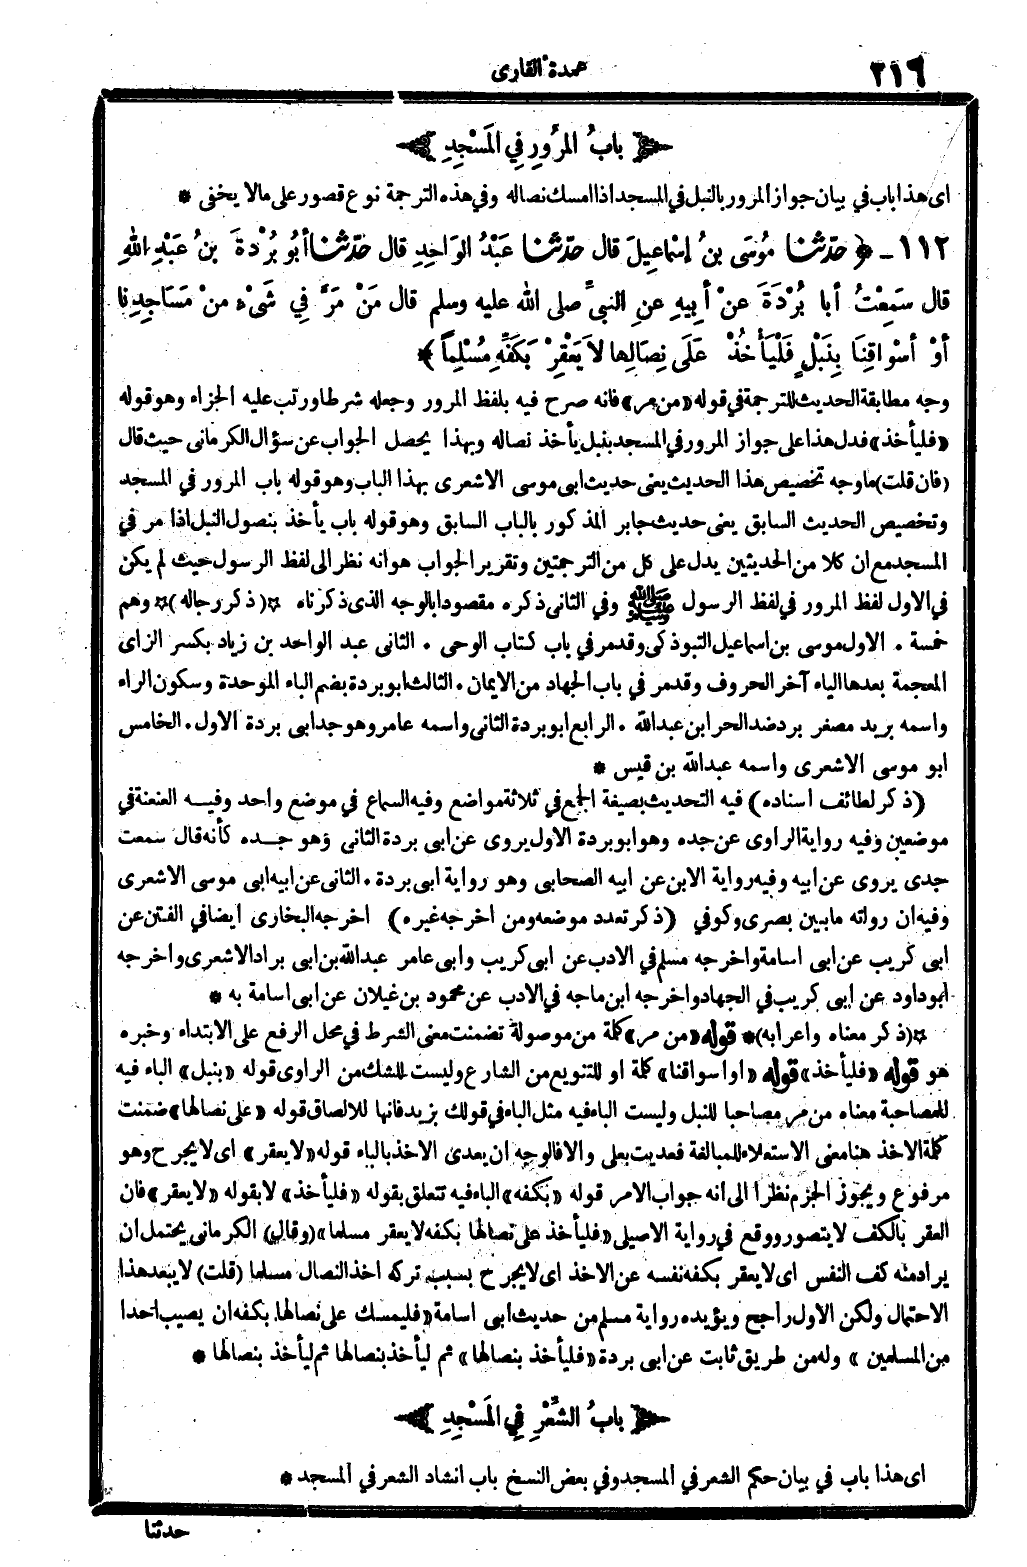 ٢١٦
عمدة القارى
باب المرور في المسجد
اى هذا باب في بيان جواز المرور بالنبل في المسجد اذا امسك نصاله وفي هذه الترجمة نوع قصور على مالا يخفى *
١١٢ - ﴿ حَدّثنا مُوسَى بنُ إسْماعِيلَ قال حَدّثنا عَبْدُ الوَاحِدِ قال حَدّثنا أبُو بُرْدةَ بنُ عَبْدِ اللهِ
قال سَمِعْتُ أبا بُرْدَةَ عنْ أبِيهِ عنِ النبيِّ صلى الله عليه وسلم قال مَنْ مَرَّ فِي شَيْءٍ منْ مَسَاجِدِنا
أوْ أسْوَاقِنَا بِنَبْلٍ فَلْيَأخُذْ عَلَى نِصَالِها لاَ يَعْقِرْ بَكَفِّهِ مُسْلِماً ﴾ *
وجه مطابقة الحديث للترجمة في قوله «من مر» فانه صرح فيه بلفظ المرور وجعله شرطا ورتب عليه الجزاء وهو قوله
«فليأخذ» فدل هذا على جواز المرور في المسجد بنبل يأخذ نصاله وبهذا يحصل الجواب عن سؤال الكرمانى حيث قال
(فان قلت) ما وجه تخصيص هذا الحديث يعنى حديث ابى موسى الاشعرى بهذا الباب وهو قوله باب المرور في المسجد
وتخصيص الحديث السابق يعنى حديث جابر المذكور بالباب السابق وهو قوله باب يأخذ بنصول النبل اذا مر في
المسجد مع ان كلا من الحديثين يدل على كل من الترجمتين وتقرير الجواب هو انه نظر الى لفظ الرسول حيث لم يكن
في الاول لفظ المرور في لفظ الرسول ﷺ وفي الثانى ذكره مقصودا بالوجه الذى ذكرناه ☆(ذكر رجاله)☆ وهم
خمسة . الاول موسى بن اسماعيل التبوذكى وقد مر في باب كتاب الوحى . الثانى عبد الواحد بن زياد بكسر الزاى
المعجمة بعدها الياء آخر الحروف وقدمر في باب الجهاد من الايمان . الثالث ابو بردة بضم الباء الموحدة وسكون الراء
واسمه بريد مصغر برد ضد الحر ابن عبدالله . الرابع ابو بردة الثانى واسمه عامر وهو جد ابى بردة الاول . الخامس
ابو موسى الاشعرى واسمه عبدالله بن قيس *
(ذكر لطائف اسناده) فيه التحديث بصيغة الجمع في ثلاثة مواضع وفيه السماع في موضع واحد وفيه العنعنة في
موضعين وفيه رواية الراوى عن جده وهو ابو بردة الاول يروى عن ابى بردة الثانى وهو جده كأنه قال سمعت
جدى يروى عن ابيه وفيه رواية الابن عن ابيه الصحابى وهو رواية ابى بردة . الثانى عن ابيه ابى موسى الاشعرى
وفيه ان رواته ما بين بصرى وكوفي (ذكر تعدد موضعه ومن اخرجه غيره) اخرجه البخارى ايضا في الفتن عن
ابى كريب عن ابى اسامة واخرجه مسلم في الادب عن ابى كريب وابى عامر عبدالله بن ابى براد الاشعرى واخرجه
ابو داود عن ابى كريب في الجهاد واخرجه ابن ماجه في الادب عن محمود بن غيلان عن ابى اسامة به *
☆(ذكر معناه واعرابه)* قوله «من مر» كلمة من موصولة تضمنت معنى الشرط في محل الرفع على الابتداء وخبره
هو قوله «فليأخذ» قوله «او اسواقنا» كلمة او للتنويع من الشارع وليست للشك من الراوى قوله «بنبل» الباء فيه
للمصاحبة معناه من مر مصاحبا للنبل وليست الباء فيه مثل الباء في قولك بزيد فانها للالصاق قوله «على نصالها» ضمنت
كلمة الاخذ هنا معنى الاستعلاء للمبالغة فعديت بعلى والا فالوجه ان يعدى الاخذ بالباء قوله «لا يعقر» اى لا يجرح وهو
مرفوع ويجوز الجزم نظرا الى انه جواب الامر قوله «بكفه» الباء فيه تتعلق بقوله «فليأخذ» لا بقوله «لا يعقر» فان
العقر بالكف لا يتصور ووقع في رواية الاصيلى «فليأخذ على نصالها بكفه لا يعقر مسلما» (وقال) الكرمانى يحتمل ان
يراد منه كف النفس اى لا يعقر بكفه نفسه عن الاخذ اى لا يجرح بسبب تركه اخذ النصال مسلما (قلت) لا يبعد هذا
الاحتمال ولكن الاول راجح ويؤيده رواية مسلم من حديث ابى اسامة «فليمسك على نصالها بكفه ان يصيب احدا
من المسلمين» وله من طريق ثابت عن ابى بردة «فليأخذ بنصالها» ثم ليأخذ بنصالها ثم ليأخذ بنصالها *
بابُ الشِّعْرِ فِي المَسْجِدِ
اى هذا باب في بيان حكم الشعر في المسجد وفي بعض النسخ باب انشاد الشعر في المسجد *
حدثنا